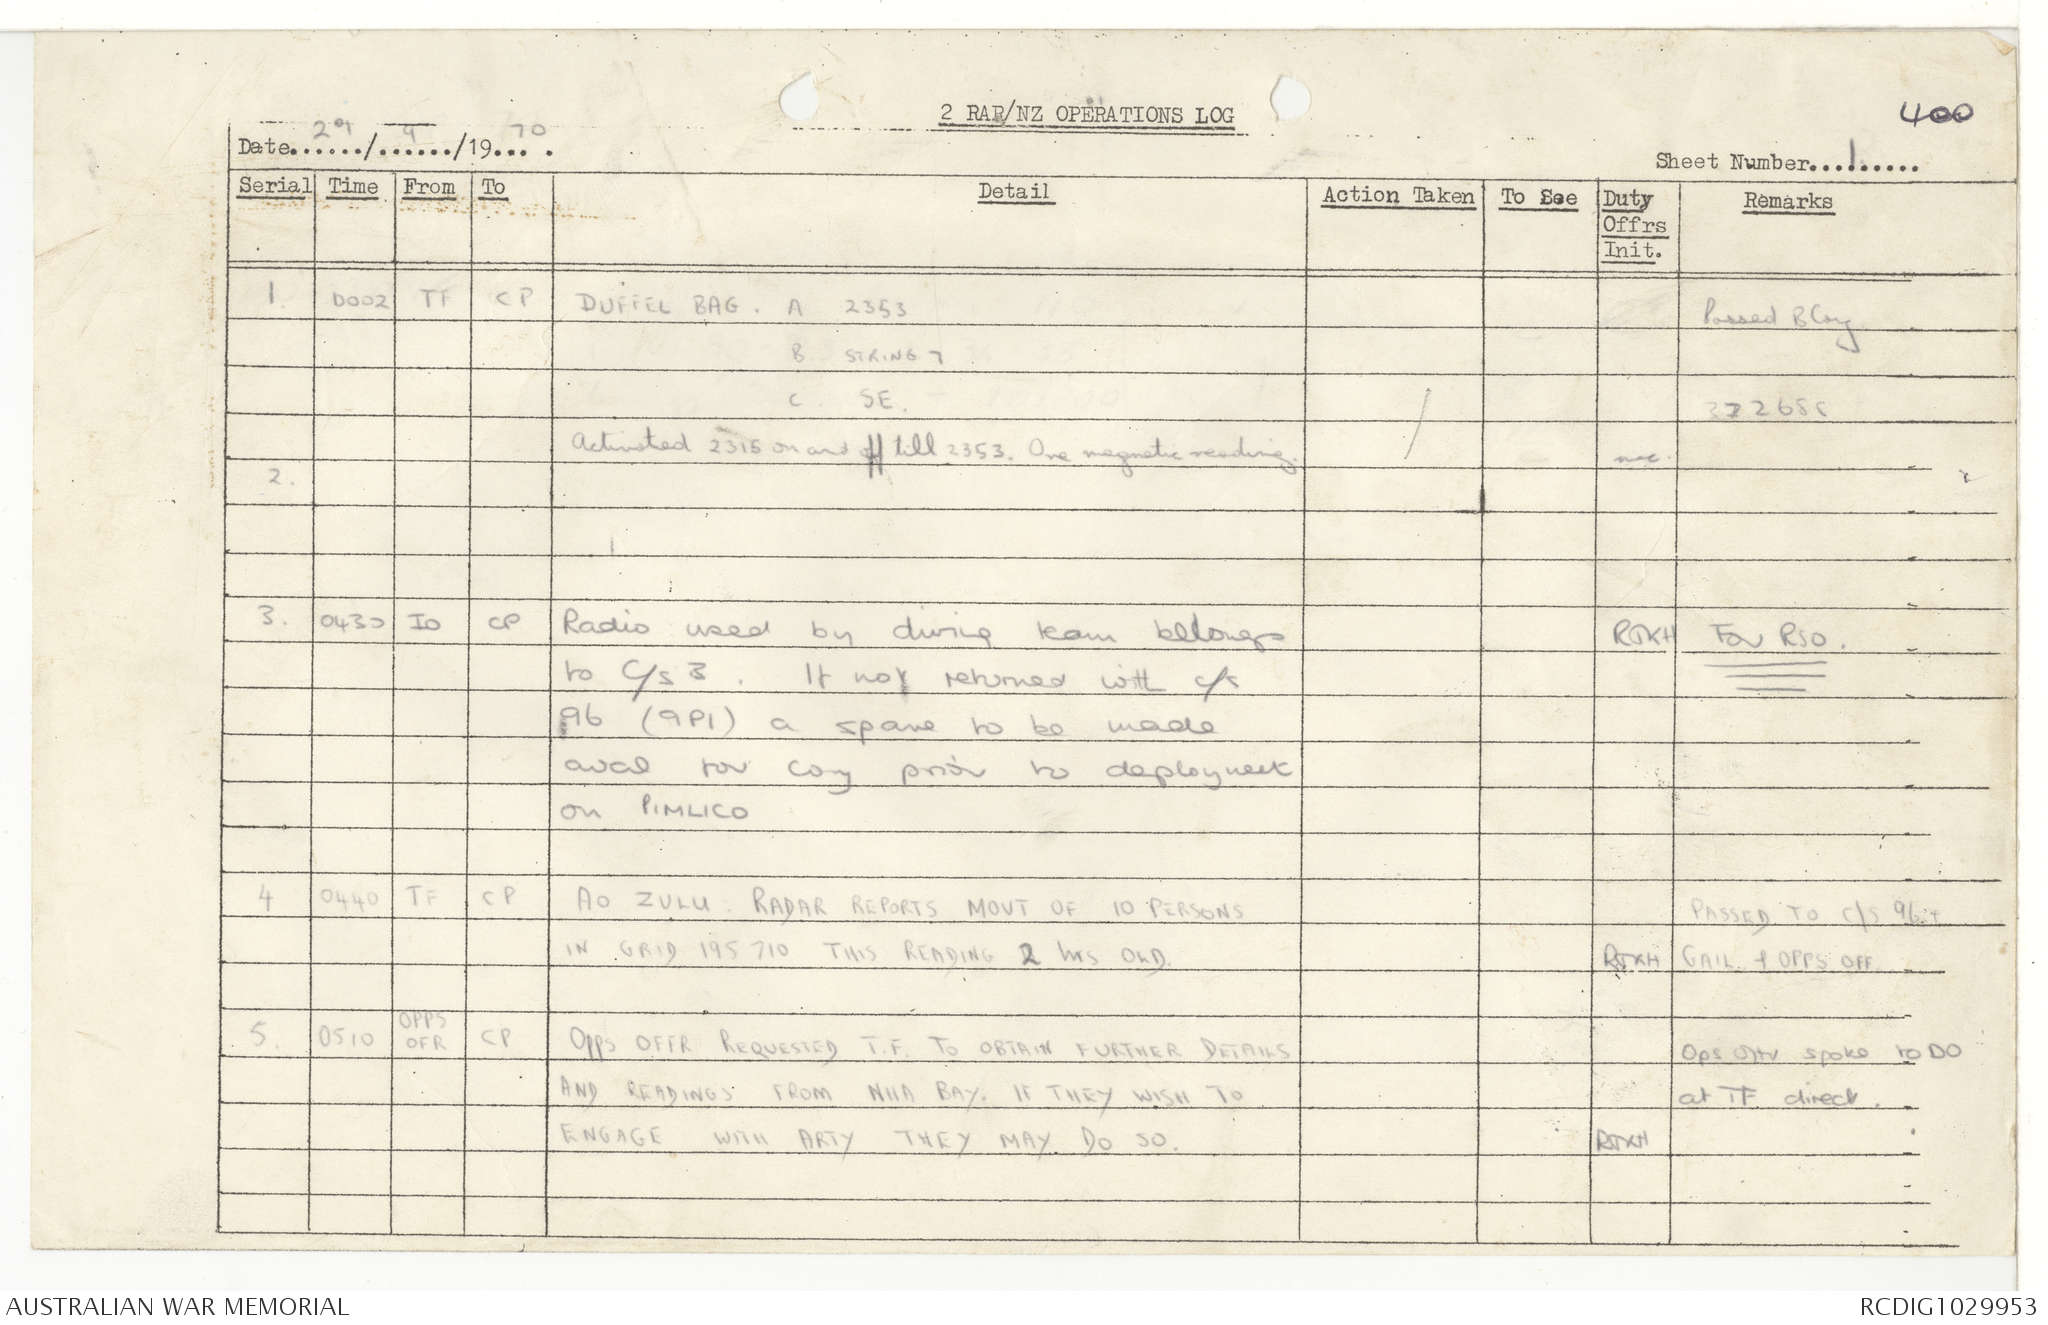 2 RAR/NZ OPERATIONS LOG
400
Date 29/9/1970
Sheet Number 1
Serial Time From To Detail Action Taken To See Duty Offrs Init. Remarks
1. 0002 TF CP DUFFEL BAG. A 2353 Passed B Coy
B STRING 7
C SE.
Activated 2315 on and off till 2353. One magnetic reading.
2.
3. 0430 IO CP Radio used by diving team belongs RJKH For RSO.
to C/S 3. If not returned with c/s
96 (9P1) a spare to be made
aval for Coy prior to deployment
on PIMLICO
4 0440 TF CP AO ZULU: RADAR REPORTS MOVT OF 10 PERSONS PASSED TO C/S 96 +
IN GRID 195710 THIS READING 2 hrs OLD. RJKH GAIL + OPPS OFF.
5. 0510 OPPS OFR CP Opps OFFR REQUESTED T.F. TO OBTAIN FURTHER DETAILS Ops Offr spoke to DO
AND READINGS FROM NHA BAY. IF THEY WISH TO at TF direct.
ENGAGE WITH ARTY THEY MAY DO SO. RJKH
AUSTRALIAN WAR MEMORIAL
RCDIG1029953